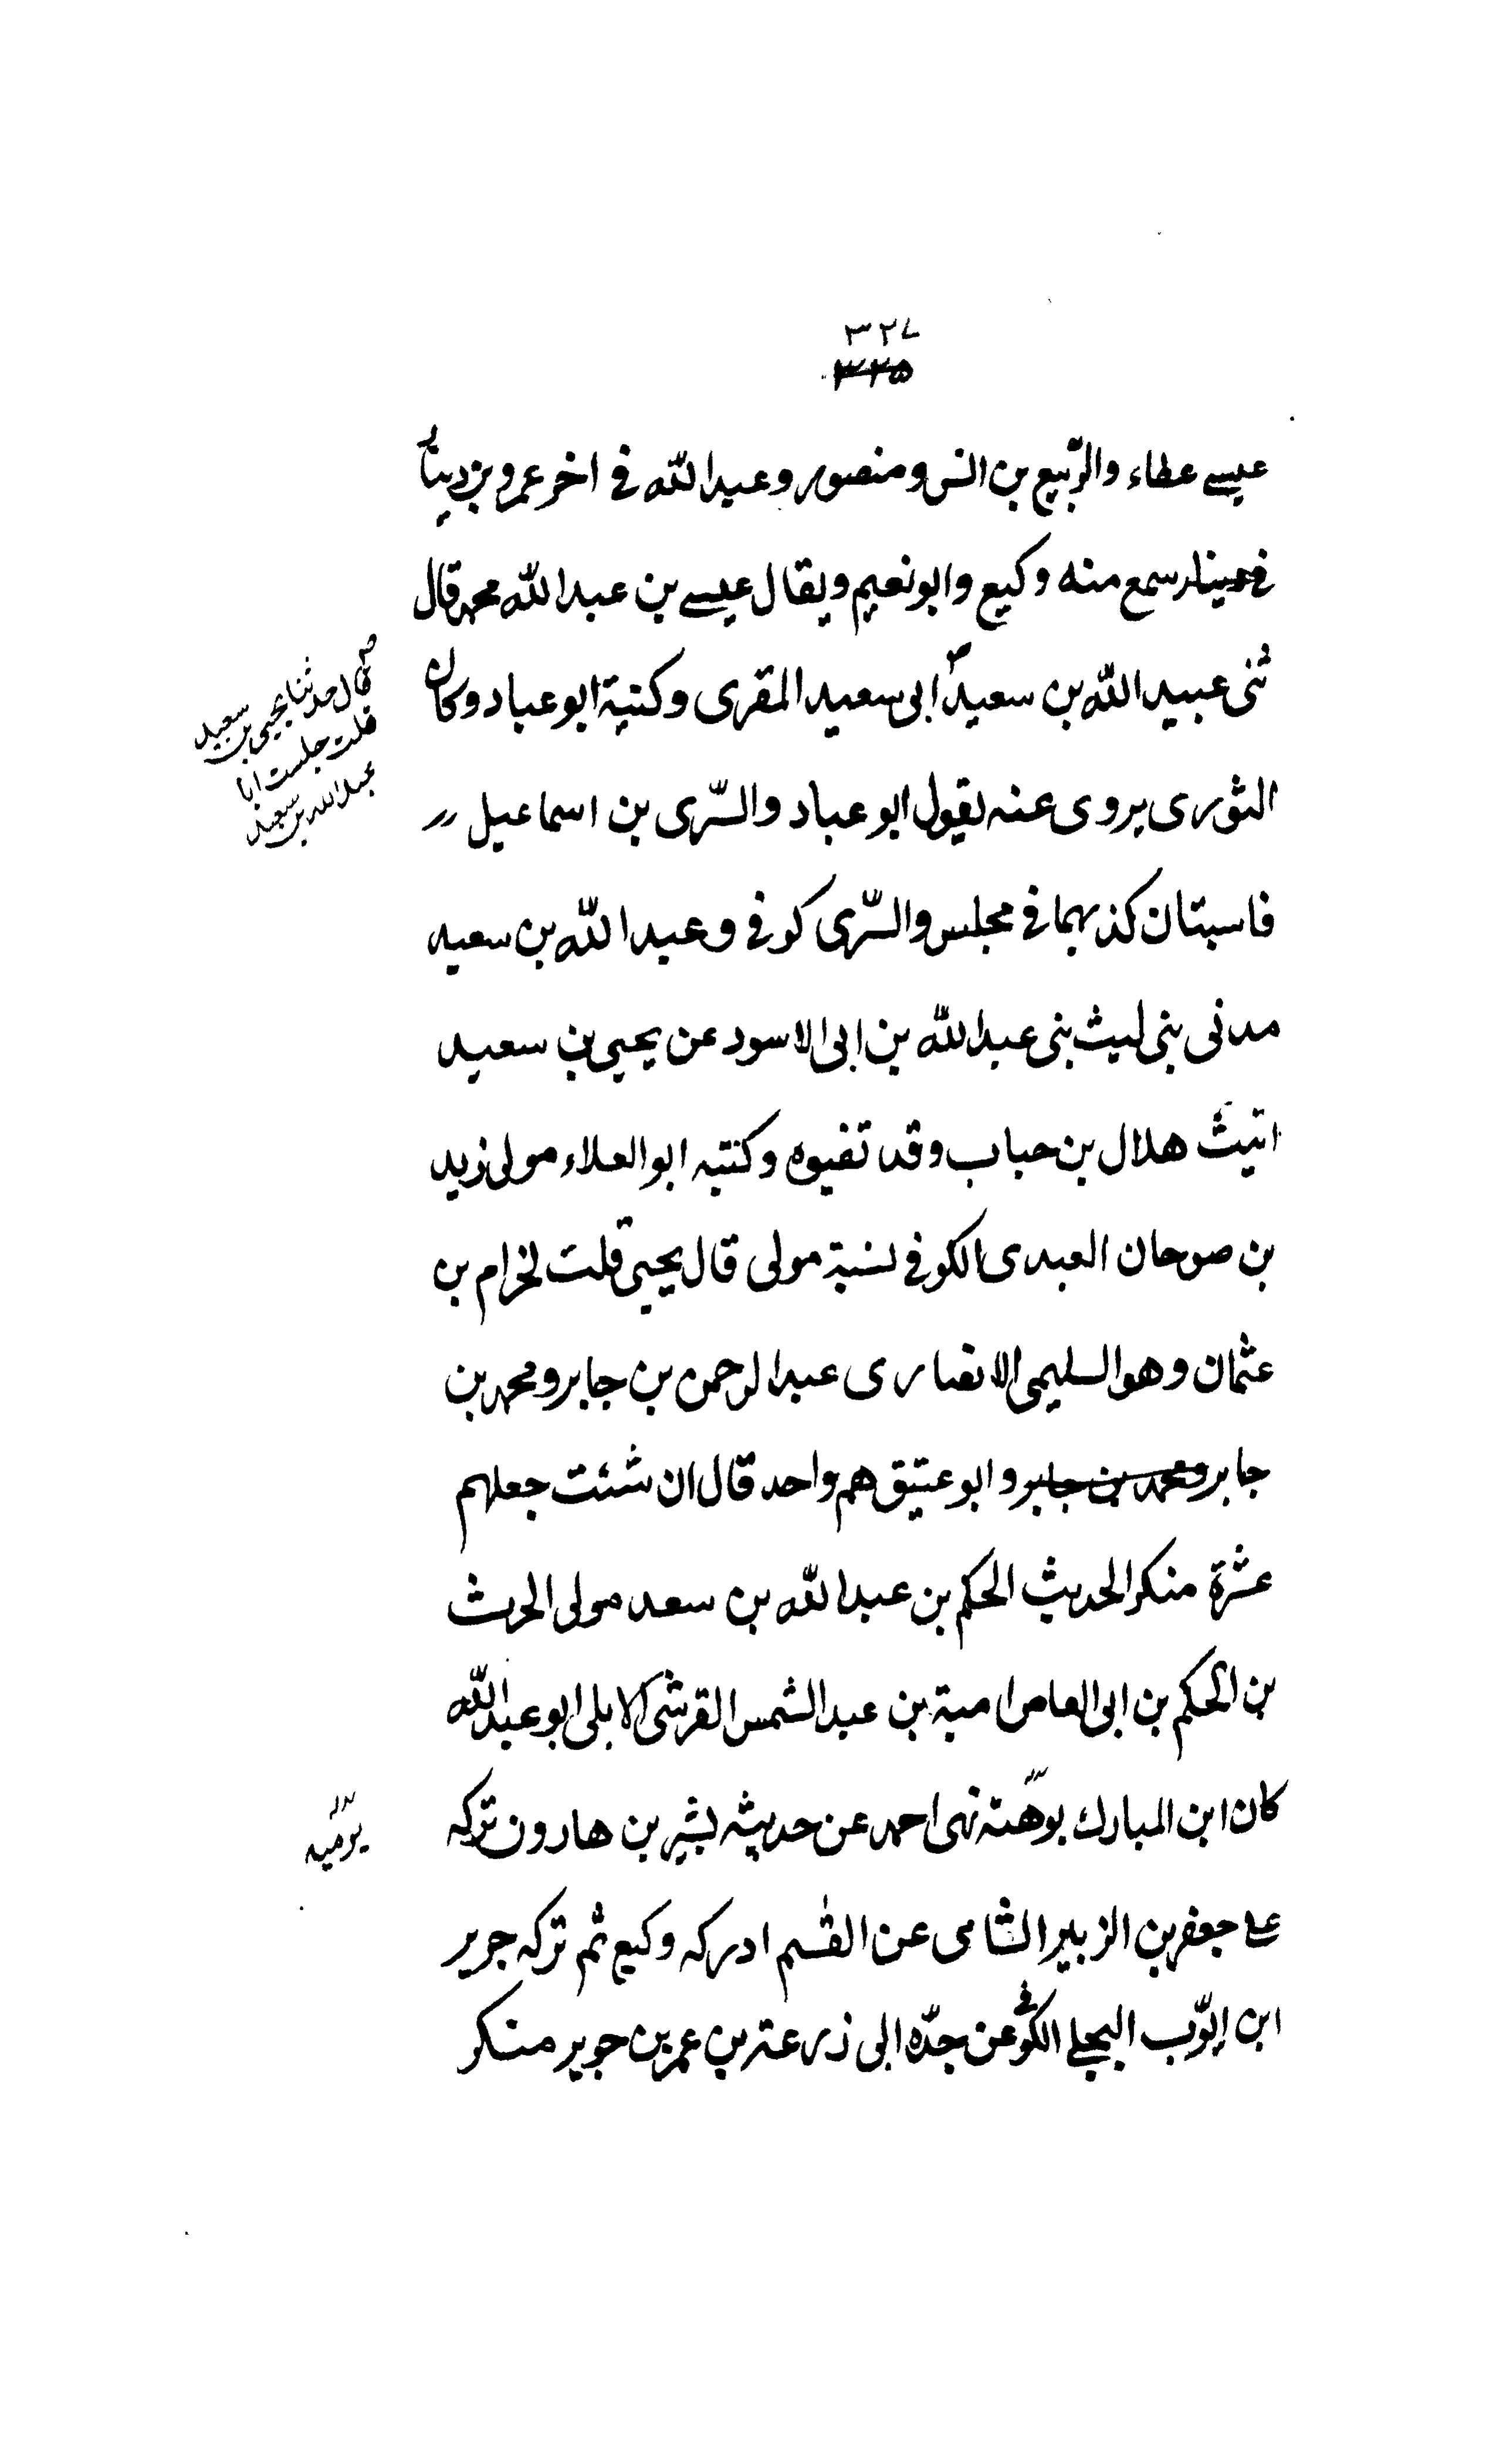 ٣٢٧
٣٢٥
عيسے عطاء والرّبيع بن انس ومنصور وعبدالله فى اخر عمرو بن دينار
فى دينار سمع منه وكيع وابونعيم ويقال عيسے بن عبدالله محمد قال
ثنى عبيدالله بن سعيد ابى سعيد المقرى وكنية ابوعباد وكان
الثورى يروى عنه يقول ابوعباد والسّرى بن اسماعيل
فاستبان كذبهما فى مجلس والسّرى كوفى وعبدالله بن سعيد
مدنى بنى ليث بنى عبدالله بن ابى الاسود عن يحيى بن سعيد
اتيت هلال بن حباب وقد تغيره وكنته ابوالعلاء مولى زيد
بن صوحان العبدى الكوفى نسبة مولى قال يحيى قلت لحرام بن
عثمان وهو السليمى الانصارى عبدالرحمن بن جابر ومحمد بن
جابر ومحمد بن جابر وابوعتيق هم واحد قال ان شئت جعلهم
عشرة منكر الحديث الحكم بن عبدالله بن سعد مولى الحرث
بن الحكم بن ابى العاص امية بن عبدالشمس القرشى الايلى ابوعبدالله
كان ابن المبارك يوهنه نهى احمد عن حديثه بشير بن هارون تركه
على جعفر بن الزبير الشامى عن القسم ادركه وكيع ثم تركه جرير
ابن ايّوب البجلے الكوفى عن جدّه ابى زرعة بن عمر بن جرير منكر
قال حدثنا يحيى بن سعيد
قلت جلست ابا
عبدالله بن سعيد